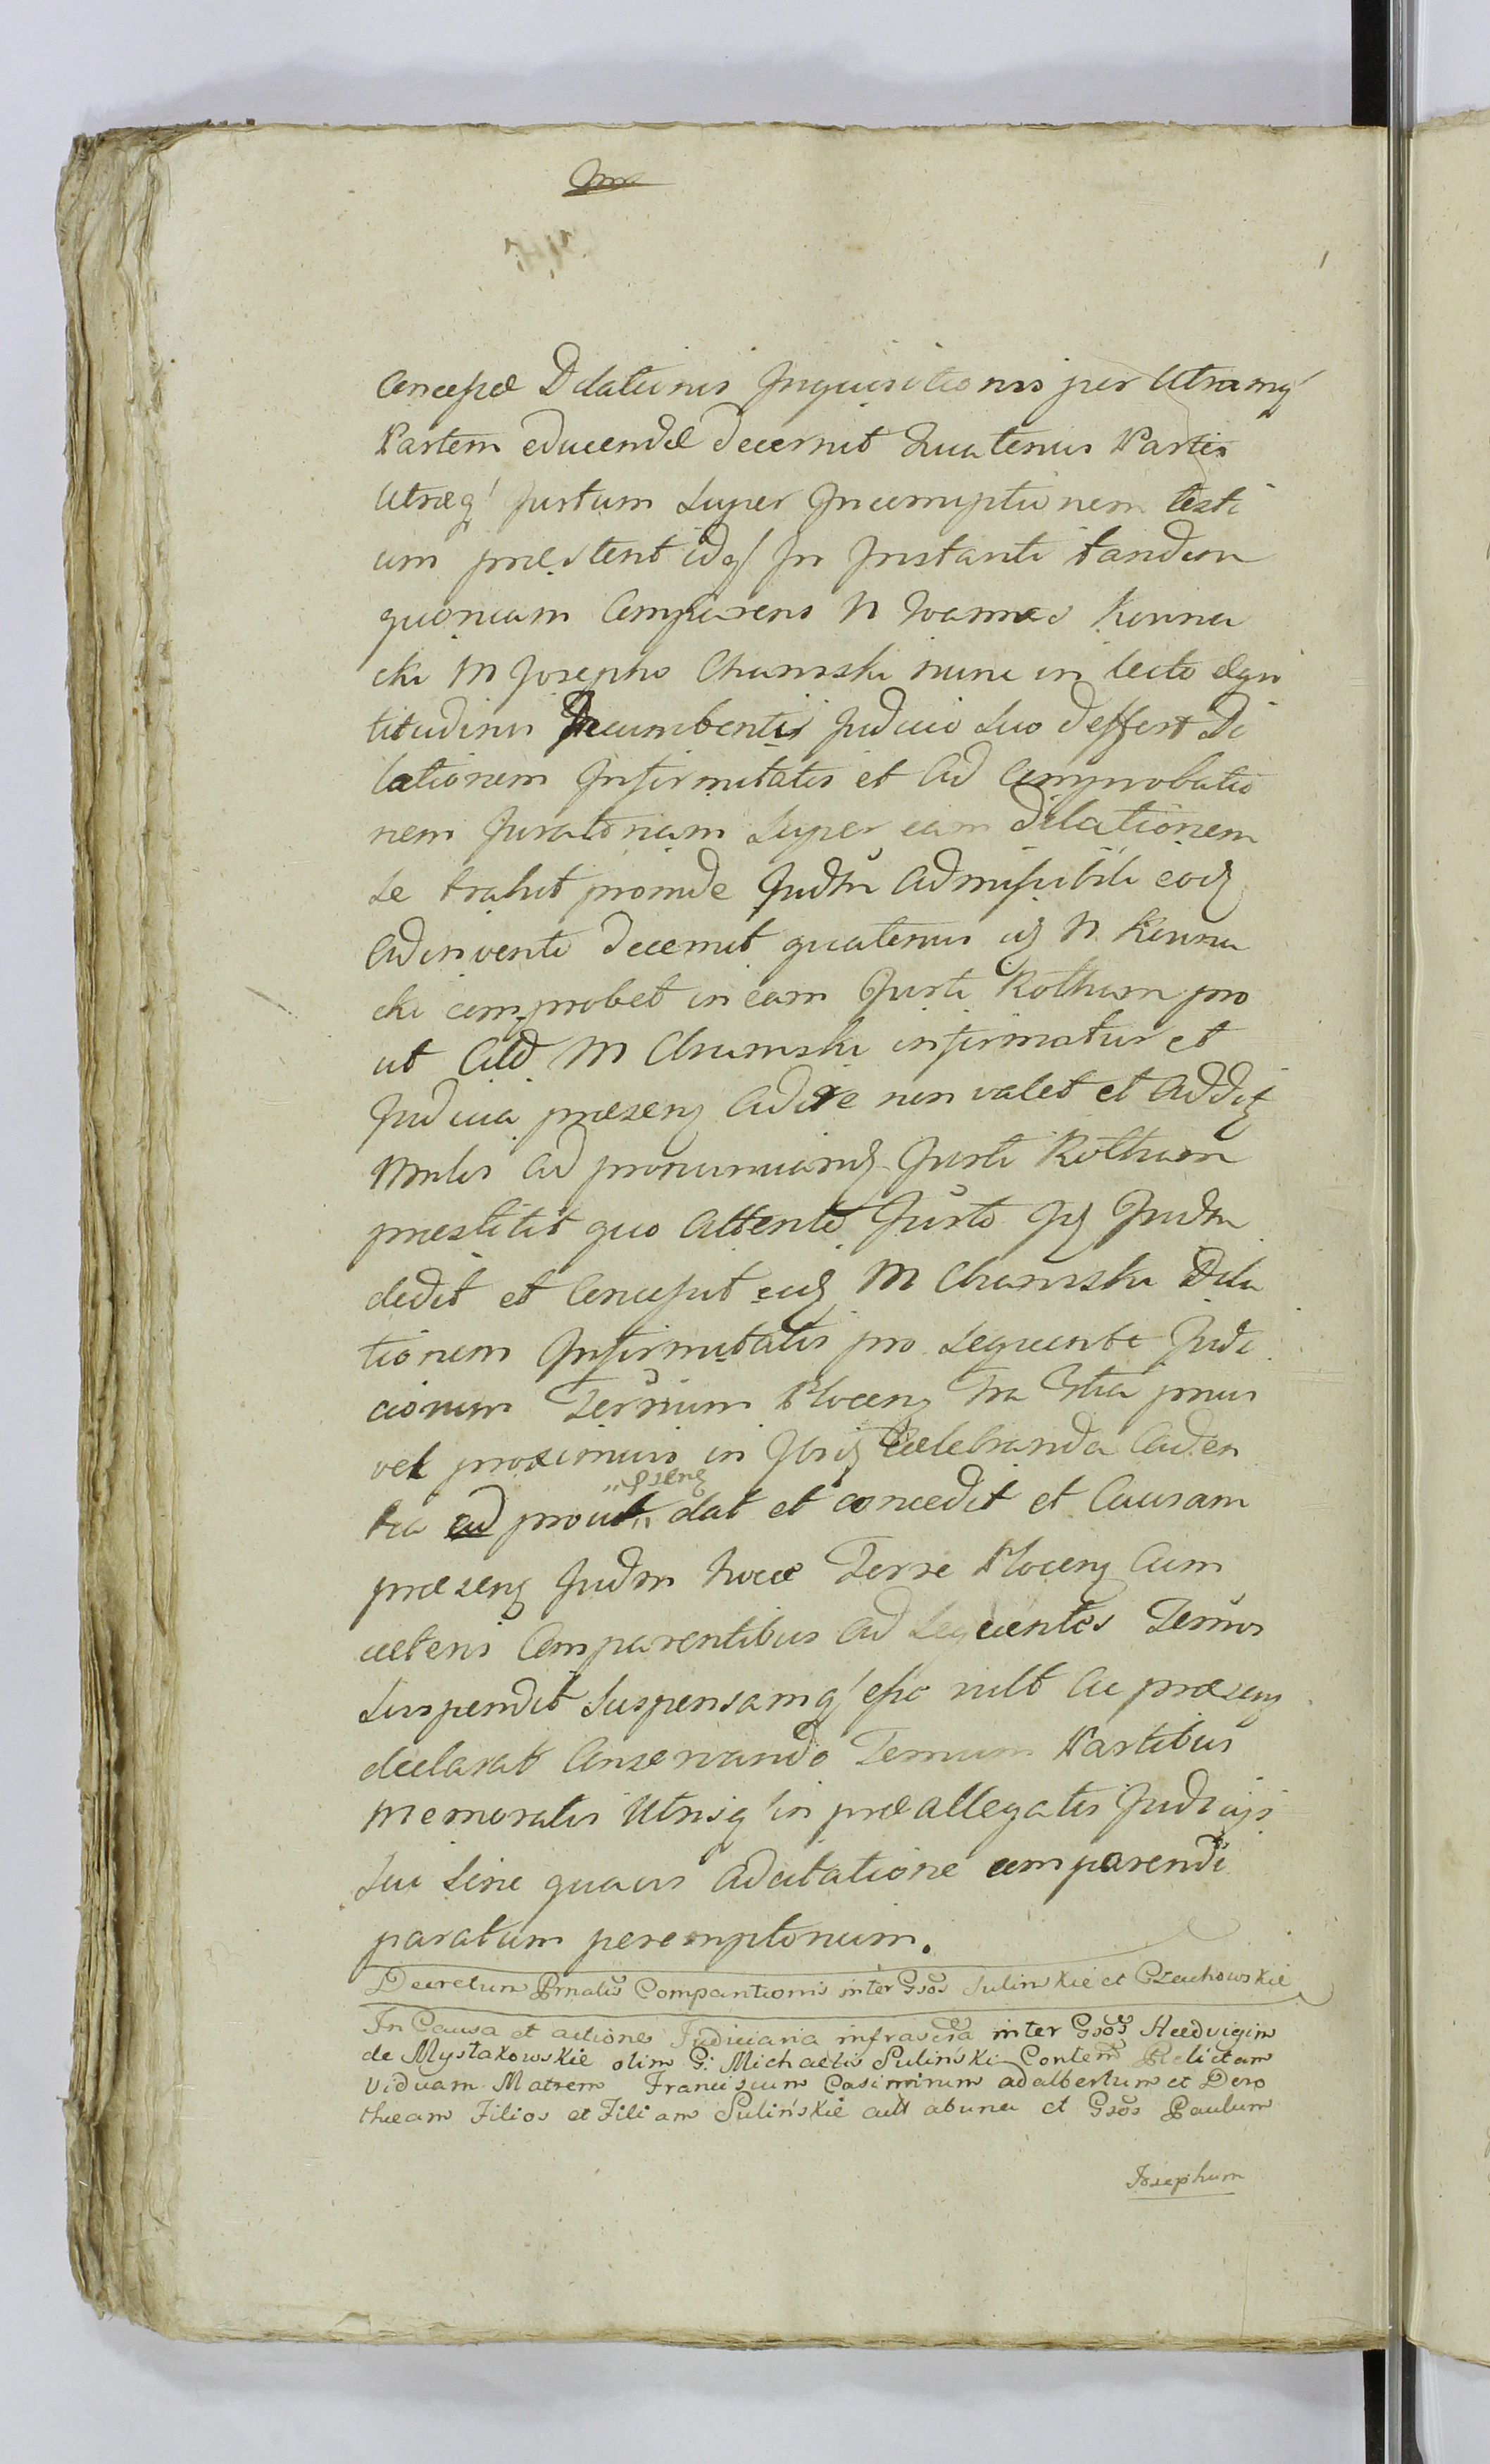 Concessæ Dilationis Inquisitionis per Utramq́
Partem educendæ decernit Quatenus Partes
Utræq́ Jurtum Super Incorruptionem testi
um præstent idq́ In Instanti tandem
quoniam Comparens N Joannes
cki M Josepho Chamski nunc in lecto ægri
titudinis Decumbentis Judicio Suo deffert Di
lationem Infirmitatis et Ad Comprobatio
nem Juratoriam Super eam dilationem
Se trahit proinde Judm̃ Admissibili eoq
Adinventi decernit quatenus iq N.
cki comprobet in eam Jurti Rotham pro
ut M Chamski infirmatur et
Judicia præsenq Adire non valet et Addiq
Ad pronunciandq Jurti Rotham
præstitit quo Attento Jurto Iq Judm
dedit et Concessit eidq M Chamski Dila
tionem Infirmitatis pro Sequente Judi
ciorum Terrium Plocenq Tra Ptia pnuis
vel proximuis in Ibiq Celebranda Caden
„psenq
tia ad prout„ dat et concedit et Causam
præsenq Judm hocce Terre Plocenq Cum
ceteris Comparentibus Ad Sequentes Termos
Suspendit Suspensamq́ esse vult Ac præsenq
declarat Conservando Termum Partibus
Memoratis Utrisq́ in præallegatis Judicijs
Sui Sine quavis Adcitatione comparendi
paratum peremptorium.
Decretum Prnalis Comparitionis inter Gsos Sulinskie et Czachowskie
In Causa et actione Judiciaria infrascra inter Gsos Hedvigim
de Mystakowskie olim G: Michaelis Suliński Contem Relictam
Viduam Matrem Franciscum Casimirum adalbertum et Doro
theam Filios et Filiam Sulińskie actt abuna et Gsos Paulum
Josephum